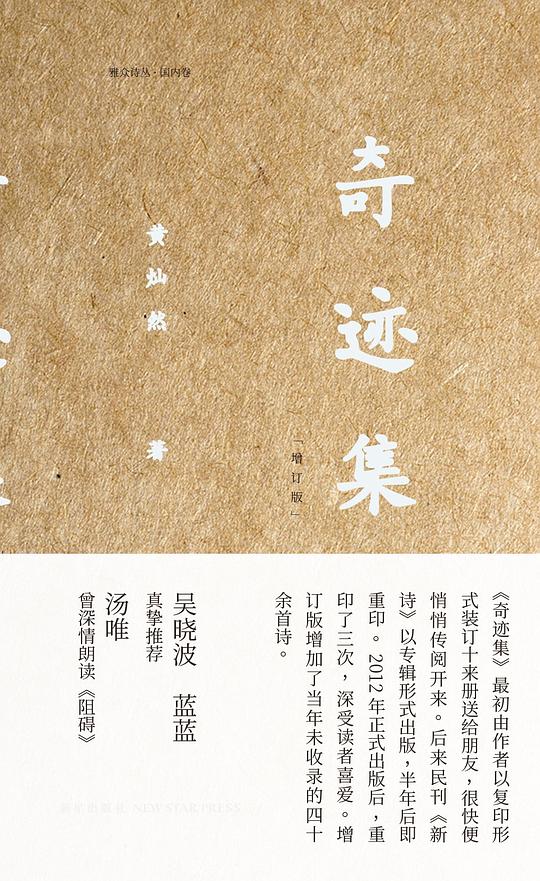 雅众诗丛·国内卷
奇迹集
「增订版」
黄灿然 著
《奇迹集》最初由作者以复印形
式装订十来册送给朋友，很快便
悄悄传阅开来。后来民刊《新
诗》以专辑形式出版，半年后即
重印。2012年正式出版后，重
印了三次，深受读者喜爱。增
订版增加了当年未收录的四十
余首诗。
吴晓波 蓝蓝
真挚推荐
汤唯
曾深情朗读《阻碍》
新星出版社 NEW STAR PRESS